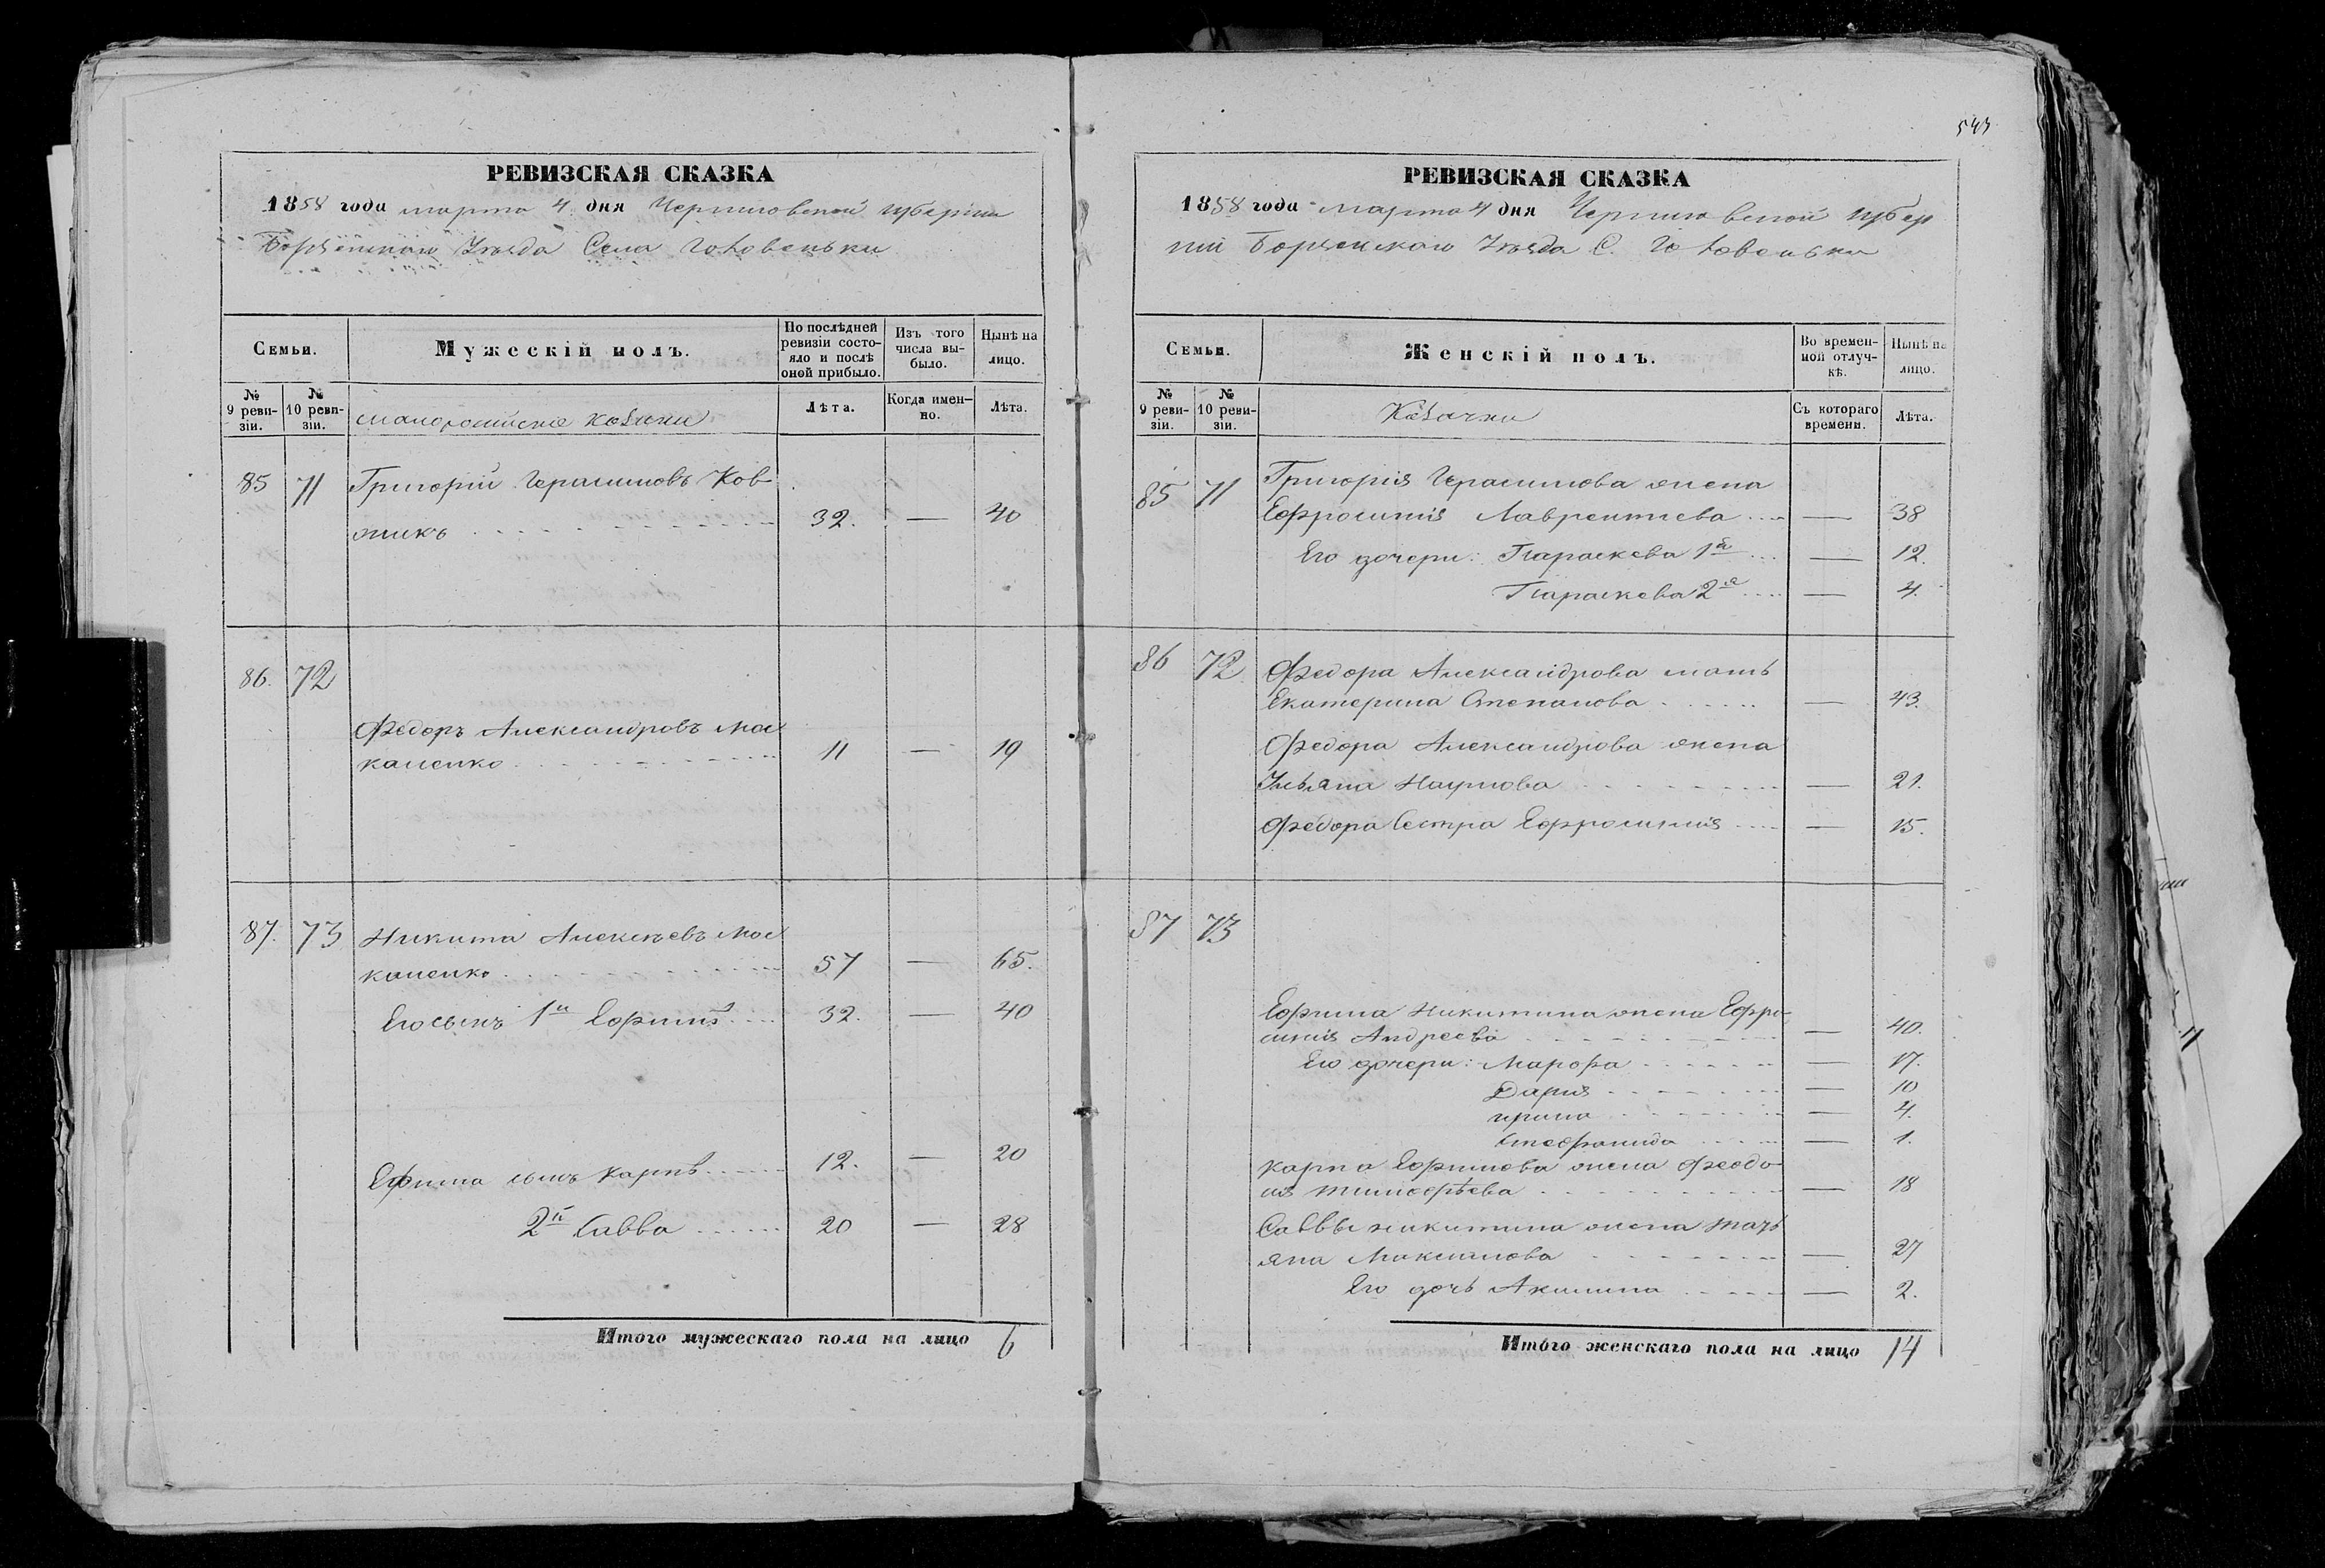 543
РЕВИЗСКАЯ СКАЗКА
1858 года марта 4 дня Черниговской губернии
Борзенскаго Уезда Села Головеньки
Семьи.
Мужескій полъ.
По послѣдней ревизіи состояло и послѣ оной прибыло.
Изъ того числа выбыло.
Нынѣ на лицо.
№ 9 ревизіи.
№ 10 ревизіи.
малороссійскіе козаки
Лѣта.
Когда именно.
Лѣта.
85 71 Григорій Герасимовъ Ков-
жикъ 32. — 40
86. 72
Федоръ Александровъ Мос
каленко 11 — 19
87. 73 Никита Алексѣевъ Мос
каленко 57 — 65.
Его сынъ 1й Ефимъ 32. — 40
Ефима сынъ Карпъ 12. — 20
2й Савва 20 — 28
Итого мужескаго пола на лицо 6
РЕВИЗСКАЯ СКАЗКА
1858 года марта 4 дня Черниговской губер
ніи Борзенскаго Уезда С. Головеньки
Семьи.
Женскій полъ.
Во временной отлучкѣ.
Нынѣ на лицо.
№ 9 ревизіи.
№ 10 ревизіи.
Козачки
Съ котораго времени.
Лѣта.
85 71 Григорія Герасимова жена
Ефросинія Лаврентиева — 38
Его дочери: Параскева 1я — 12.
Параскева 2я — 4.
86 72 Федора Александрова мать
Екатерина Степанова — 43.
Федора Александрова жена
Ульяна Наумова — 21.
Федора Сестра Ефросинія — 15.
87 73
Ефима Никитина жена Ефро-
синія Андреева — 40.
Его дочери: Марфа — 17.
Дарія — 10
ирина — 4.
Стефанида — 1.
Карпа Ефимова жена Феодо-
ія Тимофѣева — 18
Саввы Никитина жена Тать
яна Максимова — 27
Его дочь Акилина — 2.
Итого женскаго пола на лицо 14